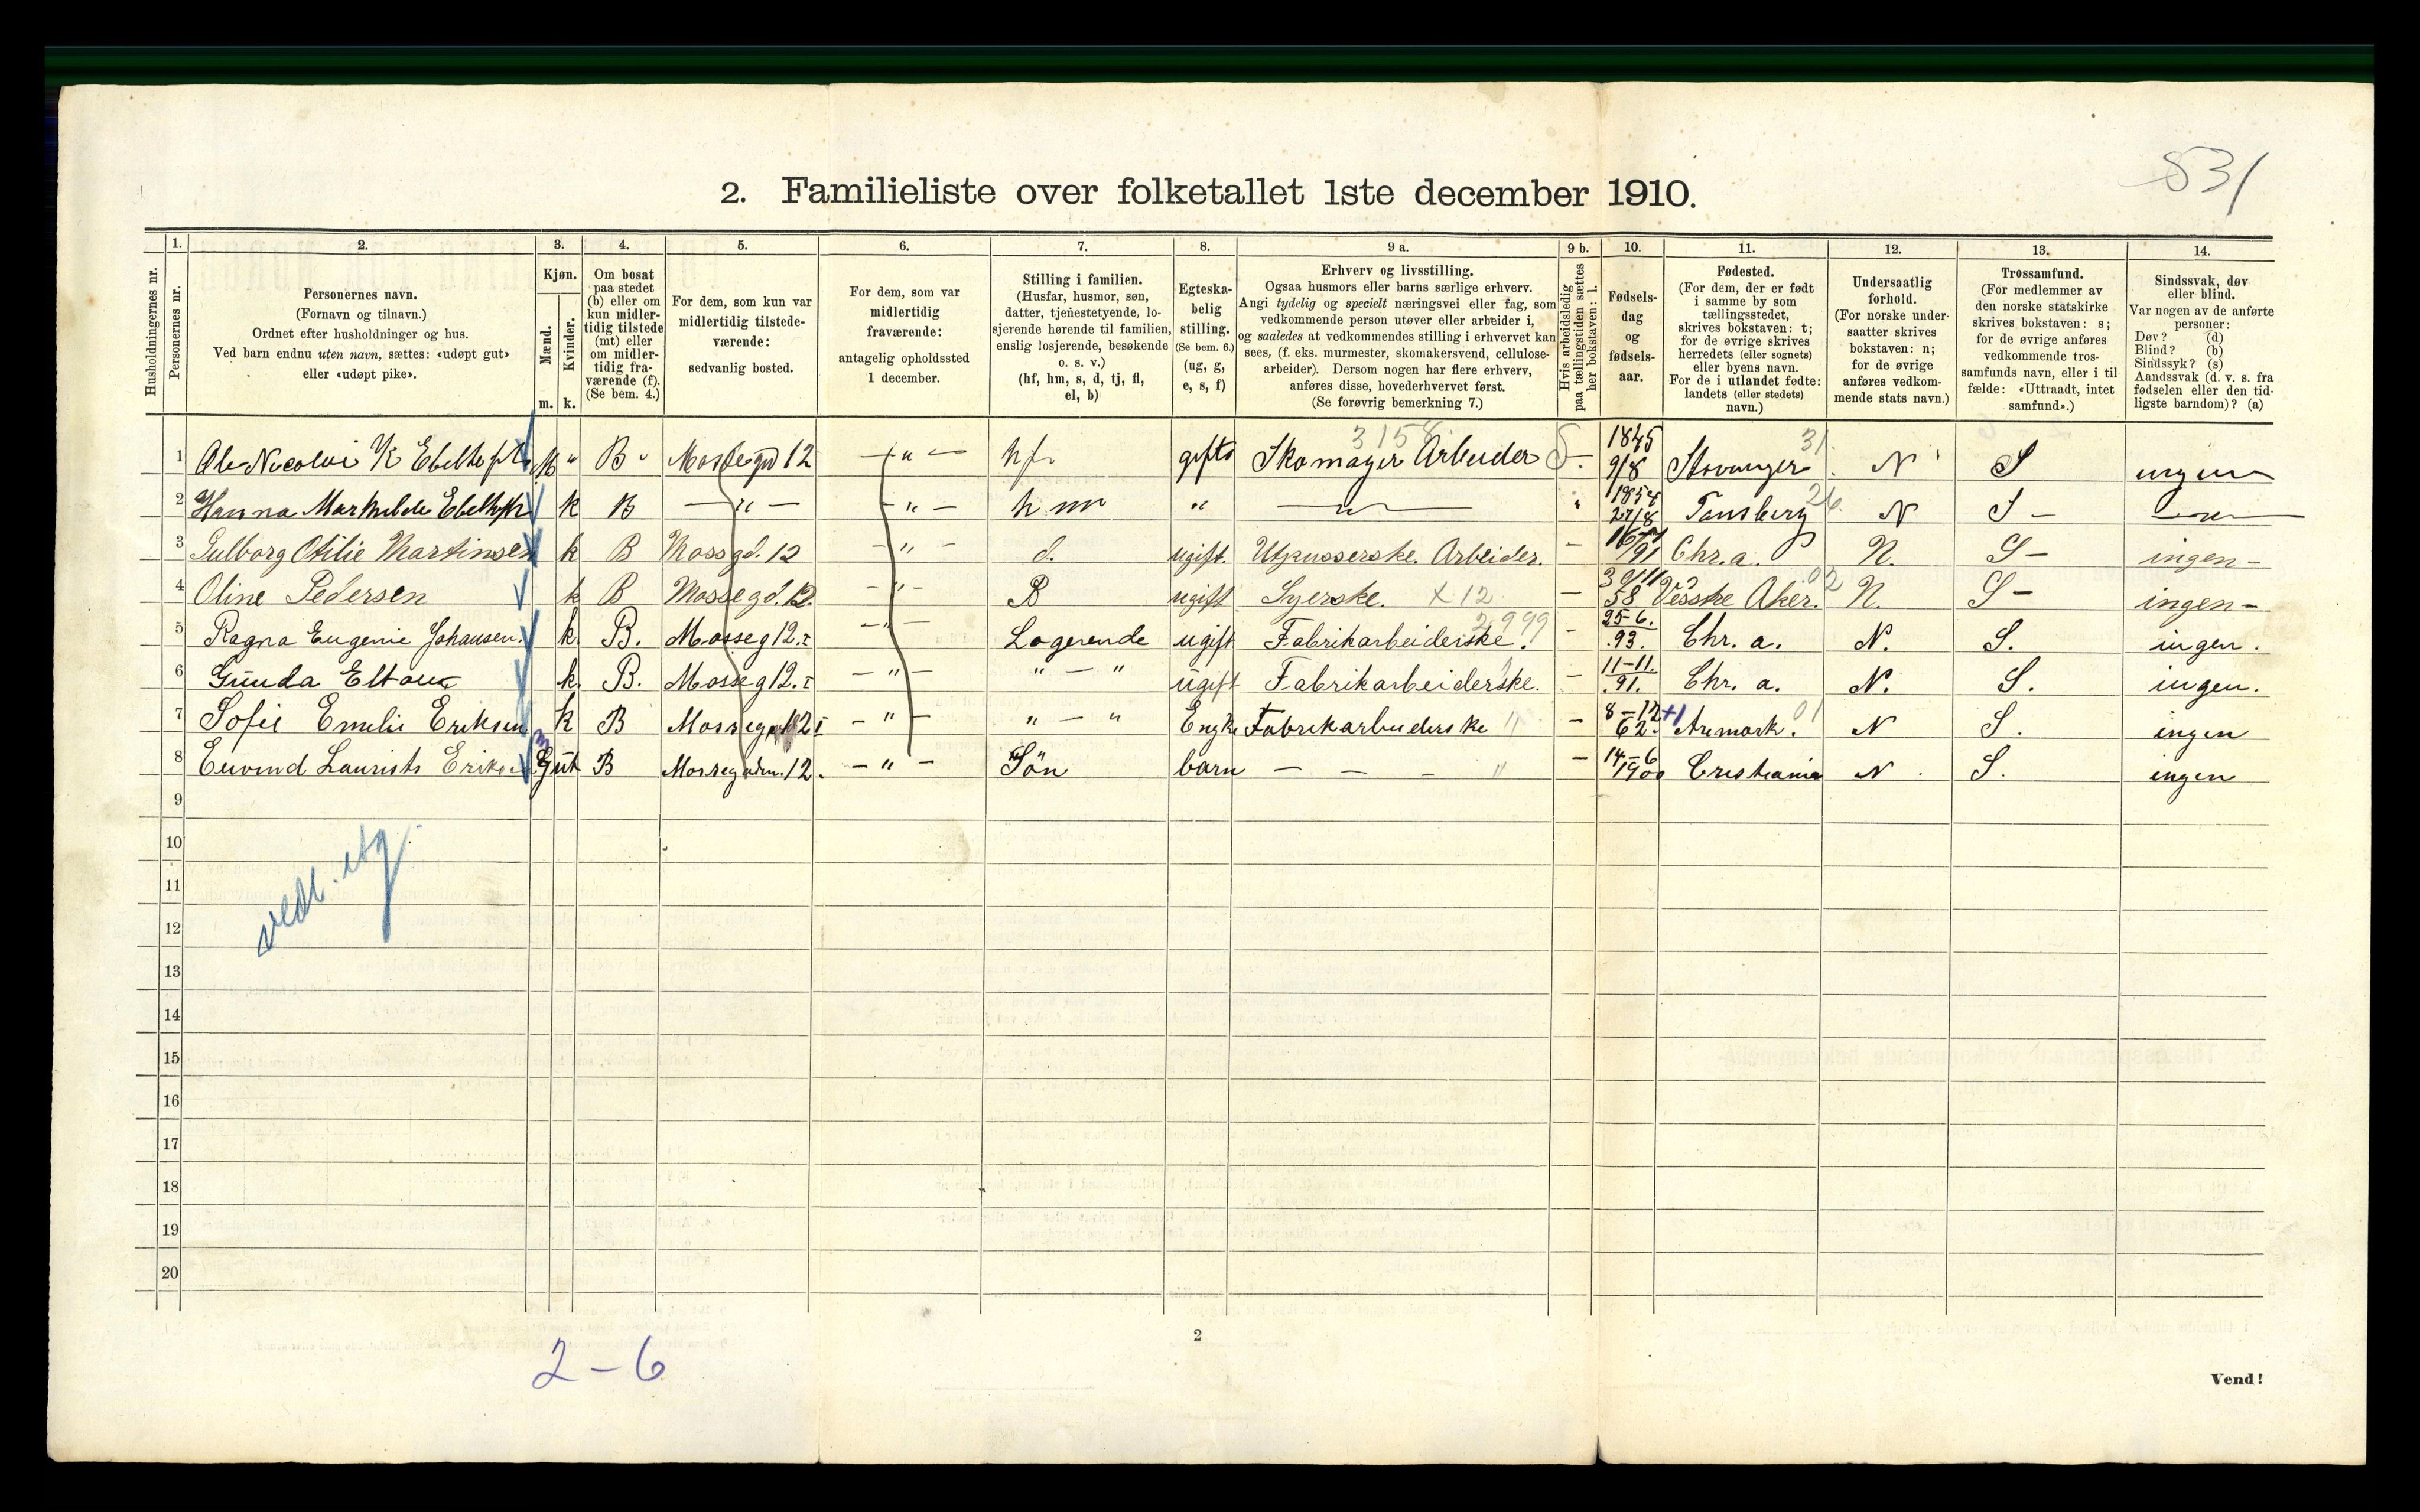 531
2. Familieliste over folketallet 1ste december 1910.
Husholdningernes nr.
1. Personernes nr.
2. Personernes navn.
(Fornavn og tilnavn.)
Ordnet efter husholdninger og hus.
Ved barn endnu uten navn, sættes: «udøpt gut»
eller «udøpt pike».
3. Kjøn.
Mænd. m.
Kvinder. k.
4. Om bosat
paa stedet
(b) eller om
kun midler-
tidig tilstede
(mt) eller
om midler-
tidig fra-
værende (f).
(Se bem. 4.)
5. For dem, som kun var
midlertidig tilstede-
værende:
sedvanlig bosted.
6. For dem, som var
midlertidig
fraværende:
antagelig opholdssted
1 december.
7. Stilling i familien.
(Husfar, husmor, søn,
datter, tjenestetyende, lo-
sjerende hørende til familien,
enslig losjerende, besøkende
o. s. v.)
(hf, hm, s, d, tj, fl,
el, b)
8. Egteska-
belig
stilling.
(Se bem. 6.)
(ug, g,
e, s, f)
9 a. Erhverv og livsstilling.
Ogsaa husmors eller barns særlige erhverv.
Angi tydelig og specielt næringsvei eller fag, som
vedkommende person utøver eller arbeider i,
og saaledes at vedkommendes stilling i erhvervet kan
sees, (f. eks. murmester, skomakersvend, cellulose-
arbeider). Dersom nogen har flere erhverv,
anføres disse, hovederhvervet først.
(Se forøvrig bemerkning 7.)
9 b. Hvis arbeidsledig
paa tællingstiden sættes
her bokstaven: l.
10. Fødsels-
dag
og
fødsels-
aar.
11. Fødested.
(For dem, der er født
i samme by som
tællingsstedet,
skrives bokstaven: t;
for de øvrige skrives
herredets (eller sognets)
eller byens navn.
For de i utlandet fødte:
landets (eller stedets)
navn.)
12. Undersaatlig
forhold.
(For norske under-
saatter skrives
bokstaven: n;
for de øvrige
anføres vedkom-
mende stats navn.)
13. Trossamfund.
(For medlemmer av
den norske statskirke
skrives bokstaven: s;
for de øvrige anføres
vedkommende tros-
samfunds navn, eller i til
fælde: «Uttraadt, intet
samfund».)
14. Sindssvak, døv
eller blind.
Var nogen av de anførte
personer:
Døv? (d)
Blind? (b)
Sindssyk? (s)
Aandssvak (d. v. s. fra
fødselen eller den tid-
ligste barndom)? (a)
1 Ole Nicolai K M " B " 12 — " — hf. gifte Skomager Arbeider 3158 1845 9/8 Stavanger 31 N S ingen
2 Hanna k B — " — — " — h m " — " — 1854 27/8 Tønsberg 26 N S — — " —
3 Gulborg Otilie Martinsen k B Mossgd. 12 — " — d. ugift. Arbeider. — 91 Chr.a. N. S — ingen —
4 Oline Pedersen k B Mossegd. 12. — " — B ugift Syerske. X 12 — 58 Aker. 02 N. S — ingen —
5 Ragna Eugenie Johansen. k. B. Mosseg 12. — " — Logerende ugift Fabrikarbeiderske. 2999 — 25-6. .93. Chr. a. N. S. ingen.
6 Gunda k. B. Mosseg 12. — " — " — " ugift Fabrikarbeiderske. — 11-11. .91. Chr. a. N. S. ingen.
7 Sofie Emelie Eriksen k B 12 — " — " — " Enke Fabrikarbeiderske " — 8-12 62. Aremark. 01 N S. ingen
8 Eivind Laurits Eriksen m Gut B 12. — " — Sön barn — — — " — 14-6 1900 Cristiania N S. ingen
9
10
11
12
13
14
15
16
17
18
19
20
vedl. etg.
2 – 6
2
Vend!